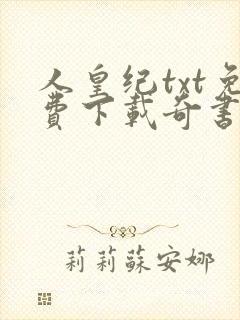 人皇纪txt免
费下载奇書
莉莉蘇安娜